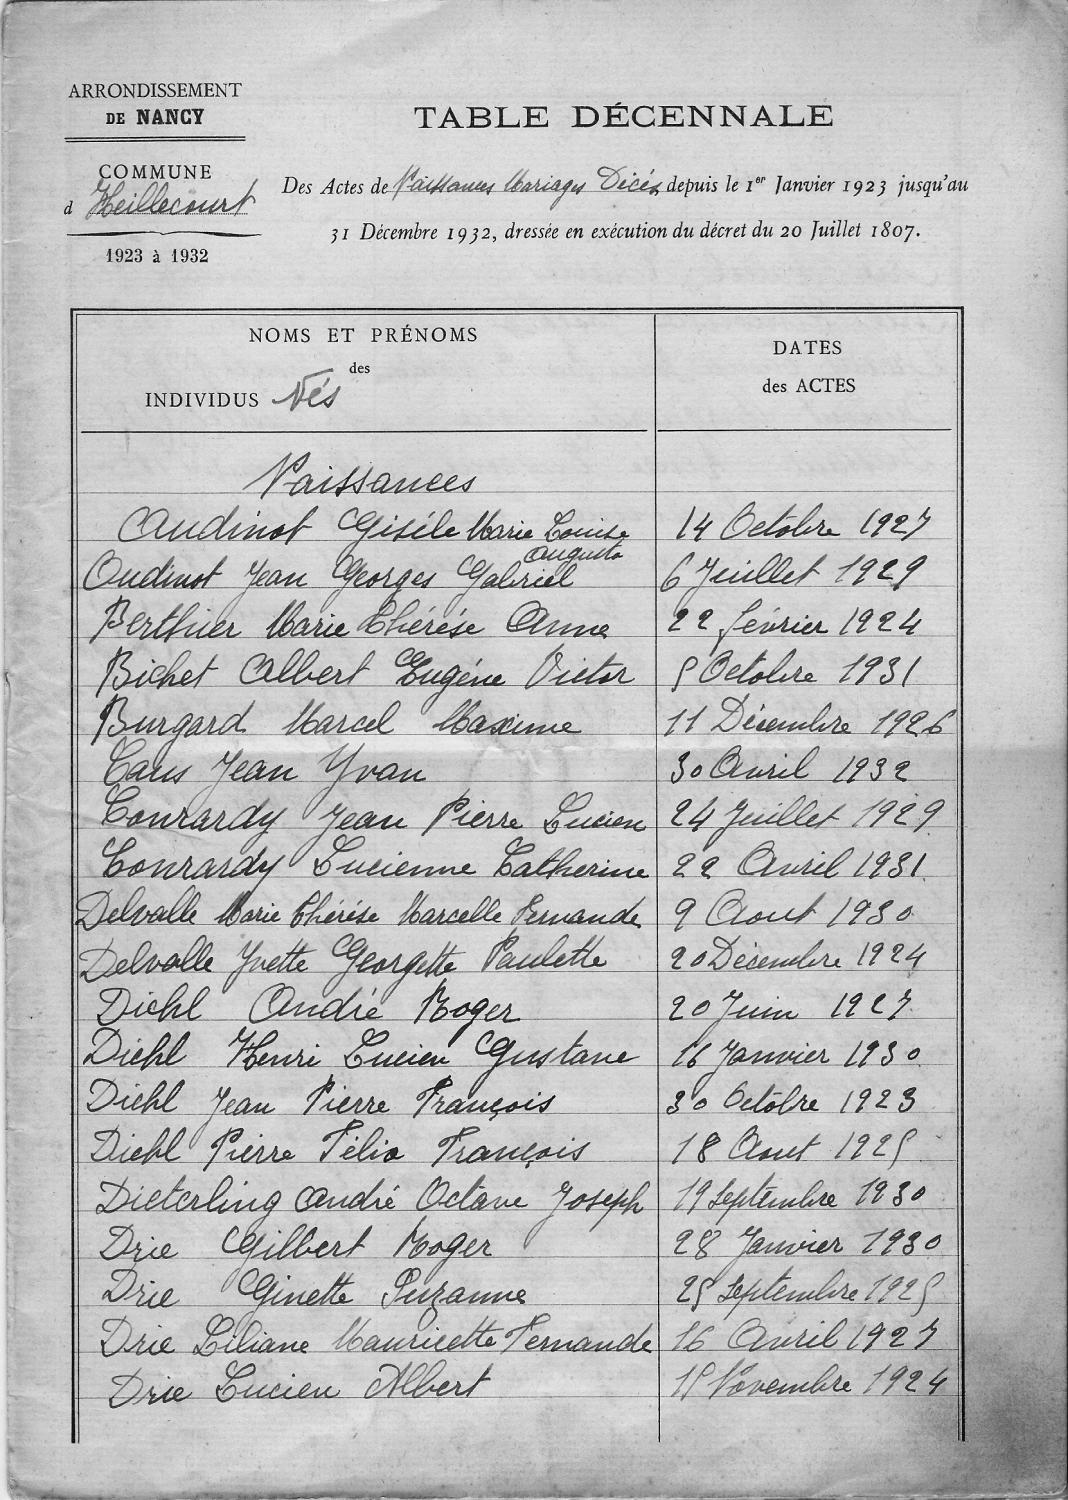 ARRONDISSEMENT
DE NANCY
TABLE DÉCENNALE
COMMUNE
d Heillecourt
1923 à 1932
Des Actes de Naissances Mariages Décés depuis le 1er Janvier 1923 jusqu'au
31 Décembre 1932, dressée en exécution du décret du 20 Juillet 1807.
NOMS ET PRÉNOMS
des
INDIVIDUS Nés
DATES
des ACTES
Naissances
Audinot Giséle Marie Louise 14 Octobre 1927
Auguste
Oudinot Jean Georges Gabriel 6 Juillet 1929
Berthier Marie Thérése Anne 22 février 1924
Bichet Albert Eugéne Victor 5 Octobre 1931
Burgard Marcel Maxime 11 Décembre 1926
Caus Jean Yvan 30 Avril 1932
Conrardy Jean Pierre Lucien 24 Juillet 1929
Conrardy Lucienne Catherine 22 Avril 1931
Delvalle Marie Thérése Marcelle Fernande 9 Aout 1930
Delvalle Yvette Georgette Paulette 20 Décembre 1924
Diehl André Roger 20 Juin 1927
Diehl Henri Lucien Gustave 16 Janvier 1930
Diehl Jean Pierre François 30 Octobre 1923
Diehl Pierre Félix François 18 Aout 1925
Dieterling André Octave Joseph 19 Septembre 1930
Drie Gilbert Roger 28 Janvier 1930
Drie Ginette Suzanne 25 Septembre 1925
Drie Liliane Mauricette Fernande 16 Avril 1927
Drie Lucien Albert 15 Novembre 1924